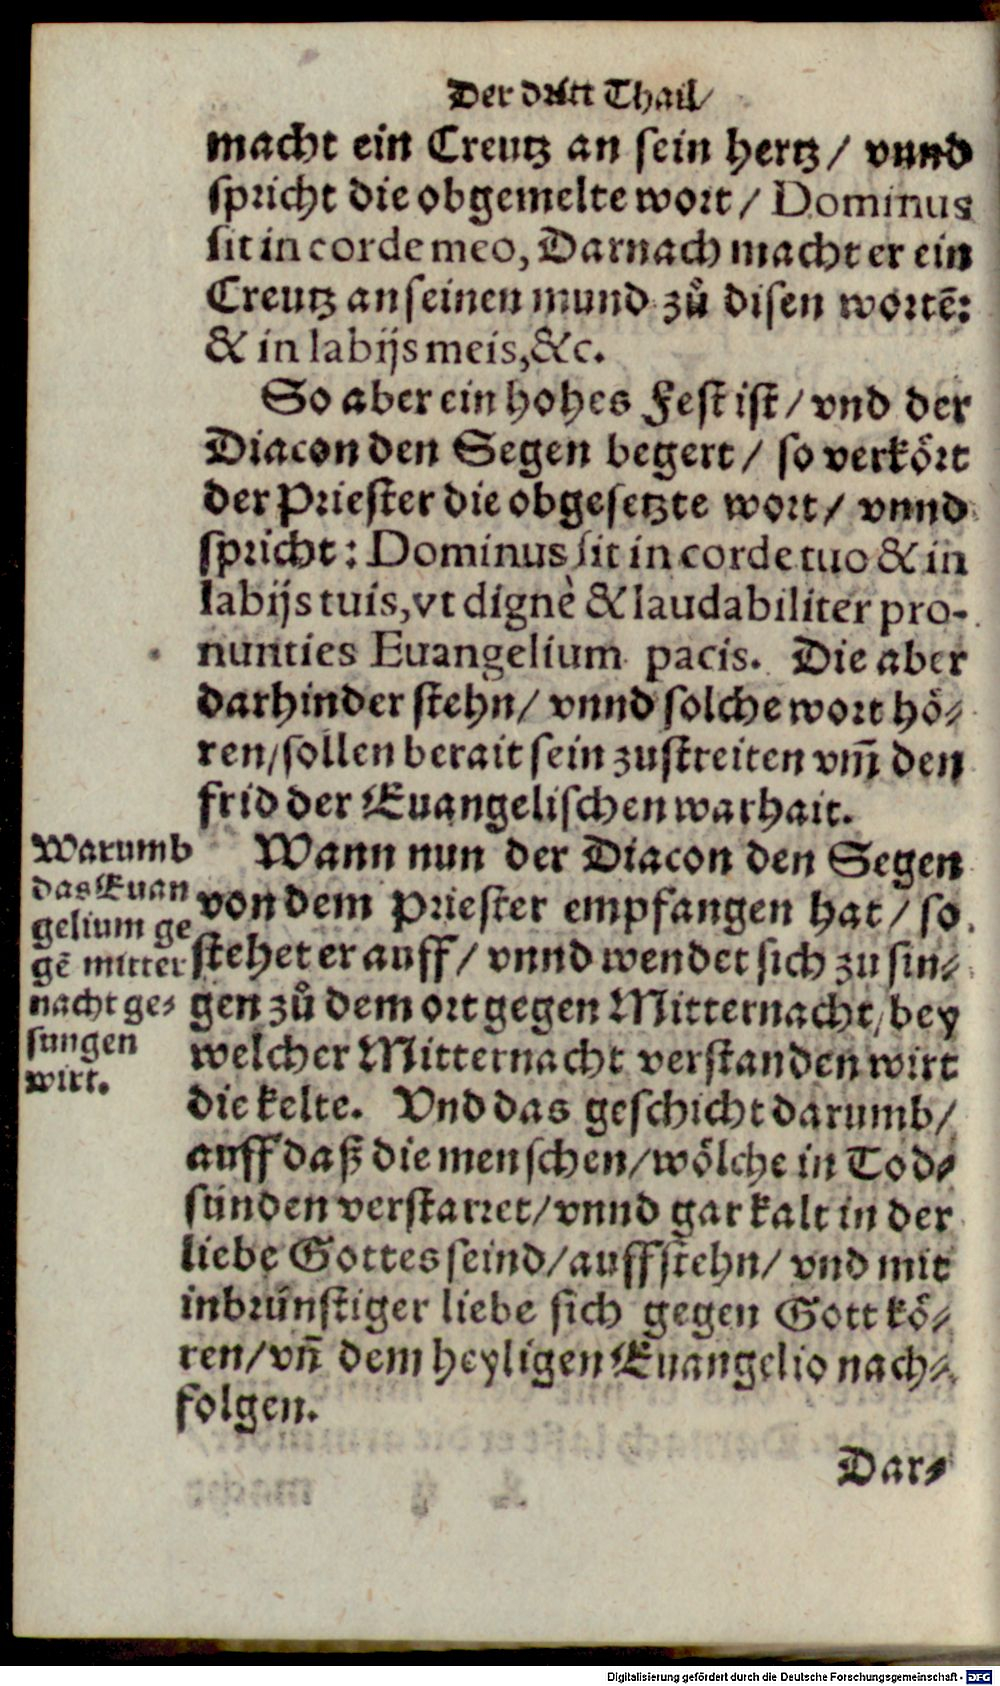 Der dritt Thail/
macht ein Creutz an sein hertz/ vnnd
spricht die obgemelte wort/ Dominus
sit in corde meo, Darnach macht er ein
Creutz an seinen mund zů disen wortē:
& in labijs meis,&c.
So aber ein hohes Fest ist/ vnd der
Diacon den Segen begert/ so verkört
der Priester die obgesetzte wort/ vnnd
spricht: Dominus sit in corde tuo & in
labijs tuis,vt dignè & laudabiliter pro-
nunties Euangelium pacis. Die aber
darhinder stehn/ vnnd solche wort hö-
ren/sollen berait sein zustreiten vm̄ den
frid der Euangelischen warhait.
Wann nun der Diacon den Segen
von dem Priester empfangen hat/ so
stehet er auff/ vnnd wendet sich zu sin-
gen zů dem ort gegen Mitternacht/bey
welcher Mitternacht verstanden wirt
die kelte. Vnd das geschicht darumb/
auff daß die menschen/wölche in Tod-
sünden verstarret/vnnd gar kalt in der
liebe Gottes seind/auffstehn/ vnd mit
inbrünstiger liebe sich gegen Gott kö-
ren/vn̄ dem heyligen Euangelio nach-
folgen.
Warumb
das Euan
gelium ge
gē mitter
nacht ge-
sungen
wirt.
Dar-
Digitalisierung gefördert durch die Deutsche Forschungsgemeinschaft - DFG